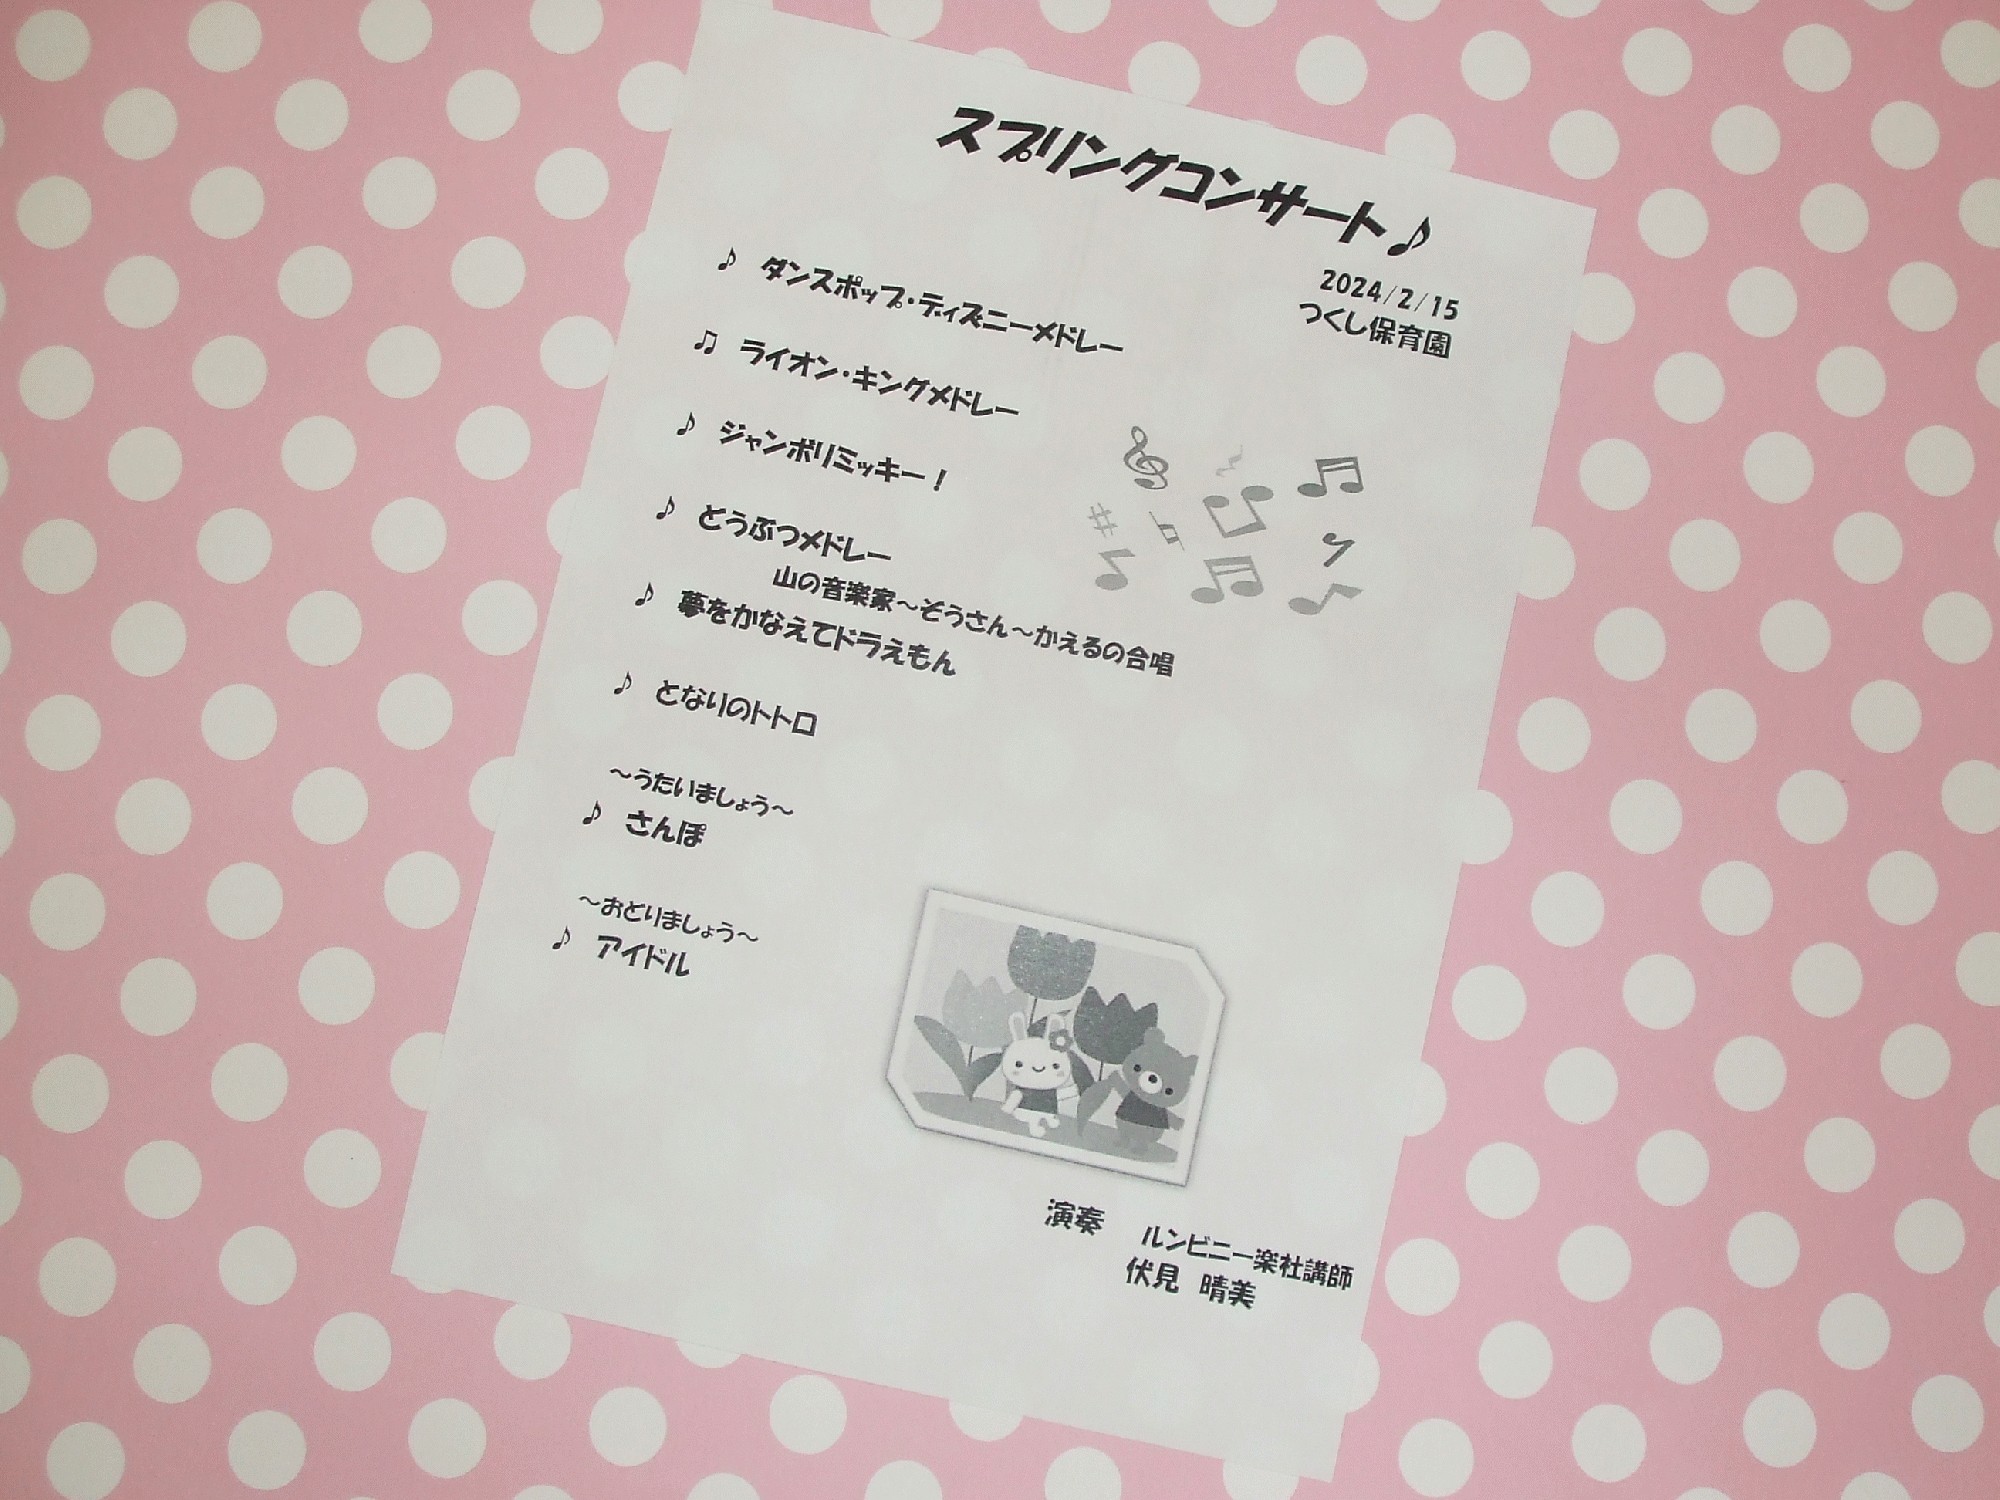 スプリングコンサート♪
2024/2/15
つくし保育園
♪ ダンスポップ・ディズニーメドレー
♫ ライオン・キングメドレー
♪ ジャンボリミッキー！
♪ どうぶつメドレー
山の音楽家～ぞうさん～かえるの合唱
♪ 夢をかなえてドラえもん
♪ となりのトトロ
～うたいましょう～
♪ さんぽ
～おどりましょう～
♪ アイドル
演奏 ルンビニー楽社講師
伏見 晴美